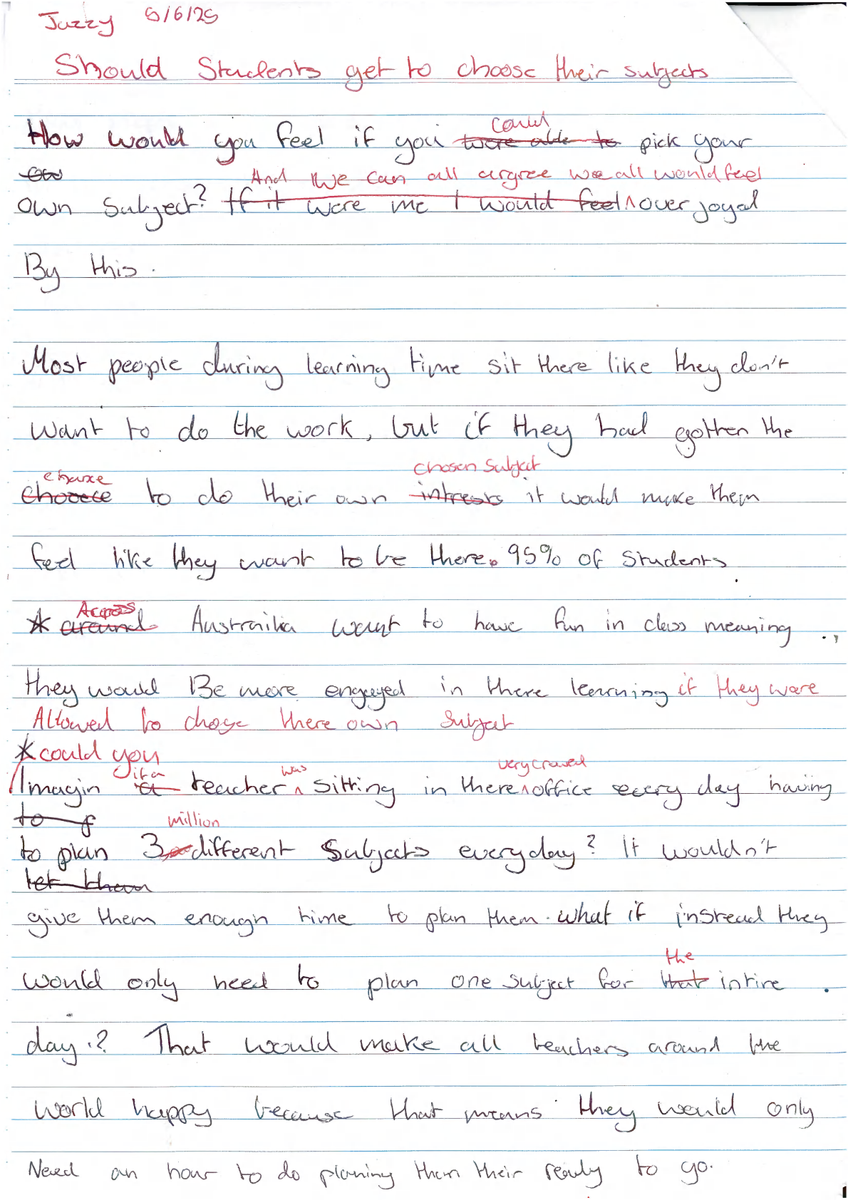 Jazzy 5/6/25
Should Students get to choose their subjects
could
How would you feel if you were able to pick your
ow
And We can all argree we all would feel
own subject? If it were me I would feel ^ over joyed
By this.
Most people during learning time sit there like they don't
want to do the work, but if they had gotten the
chosen subject
to do their own intrests it would make them
feel like they want to be there. 95% of students
Across
* around Austrailia want to have fun in class meaning
they would Be more engaged in there learning if they were
Allowed to choge there own subject
* could you
if a was very crowed
Imagin teacher ^ sitting in there ^ office every day having
to f
million
to plan 3 different subjects everyday? It wouldn't
let them
give them enough time to plan them. what if instead they
the
would only need to plan one subject for that intire
day.? That would make all teachers around the
world happy because that means they would only
Need an hour to do planing then their ready to go.